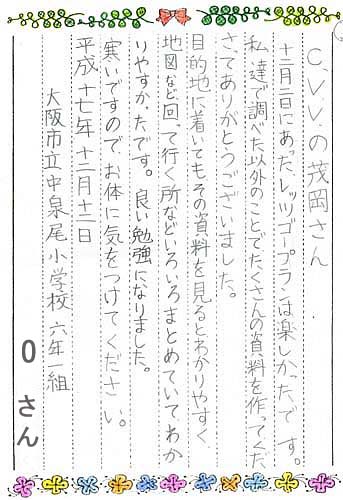 C.V.V.の茂岡さん
十二月二日にあった、レッツゴープランは楽しかったです。
私達で調べた以外のことでたくさんの資料を作ってくだ
さってありがとうございました。
目的地に着いてもその資料を見るとわかりやすく
地図など回って行く所などいろいろまとめていてわか
りやすかったです。良い勉強になりました。
寒いですので、お体に気をつけてください。
平成十七年十二月十二日
大阪市立中泉尾小学校六年一組
Oさん